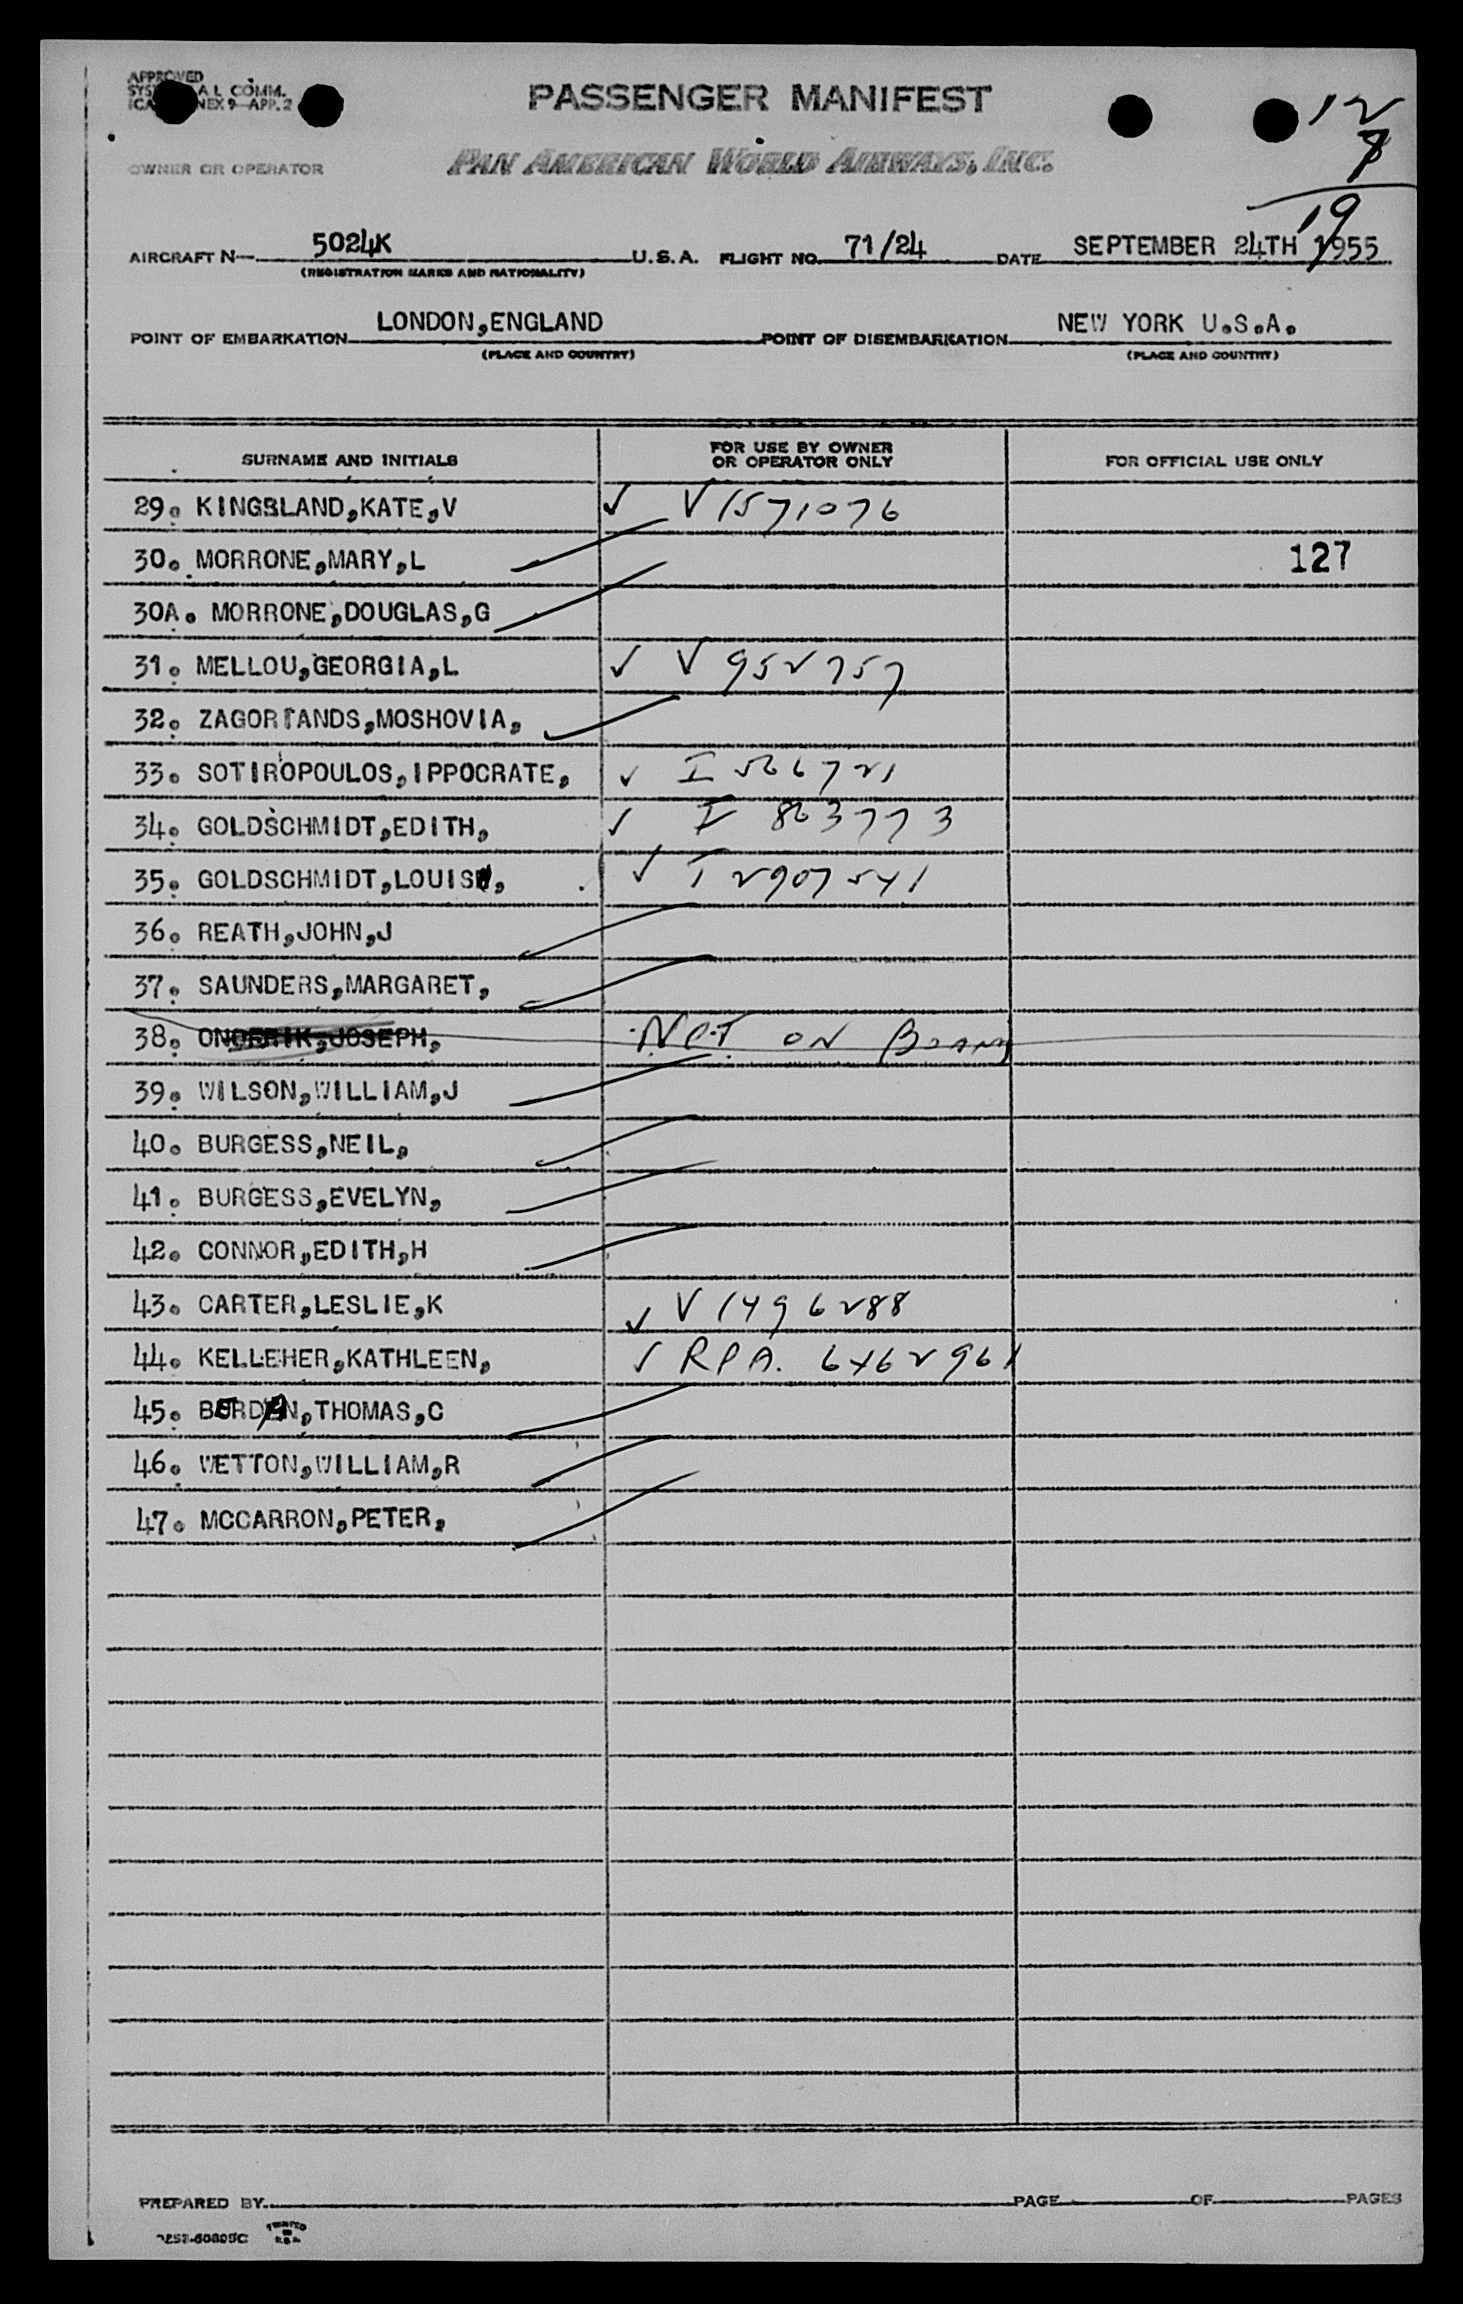 APPROVED
SYS AL COMM.
ICA NEX 9—APP. 2
PASSENGER MANIFEST
12
7
19
OWNER OR OPERATOR
PAN AMERICAN WORLD AIRWAYS, INC.
AIRCRAFT N— 5024K U.S.A. FLIGHT NO. 71/24 DATE SEPTEMBER 24TH 1955
(REGISTRATION MARKS AND NATIONALITY)
POINT OF EMBARKATION LONDON,ENGLAND POINT OF DISEMBARKATION NEW YORK U.S.A.
(PLACE AND COUNTRY) (PLACE AND COUNTRY)
SURNAME AND INITIALS FOR USE BY OWNER OR OPERATOR ONLY FOR OFFICIAL USE ONLY
29. KINGSLAND,KATE,V ✓ V1571076
30. MORRONE,MARY,L 127
30A. MORRONE,DOUGLAS,G
31. MELLOU,GEORGIA,L ✓ V952757
32. ZAGORIANDS,MOSHOVIA,
33. SOTIROPOULOS,IPPOCRATE, ✓ I 566721
34. GOLDSCHMIDT,EDITH, ✓ I 863773
35. GOLDSCHMIDT,LOUIS, ✓ I 2907541
36. REATH,JOHN,J
37. SAUNDERS,MARGARET,
38. JOSEPH, NOT ON BOARD
39. WILSON,WILLIAM,J
40. BURGESS,NEIL,
41. BURGESS,EVELYN,
42. CONNOR,EDITH,H
43. CARTER,LESLIE,K ✓ V1496288
44. KELLEHER,KATHLEEN, ✓ RPA. 6462961
45. THOMAS,C
46. WETTON,WILLIAM,R
47. MCCARRON,PETER,
PREPARED BY PAGE OF PAGES
PRINTED IN U.S.A.